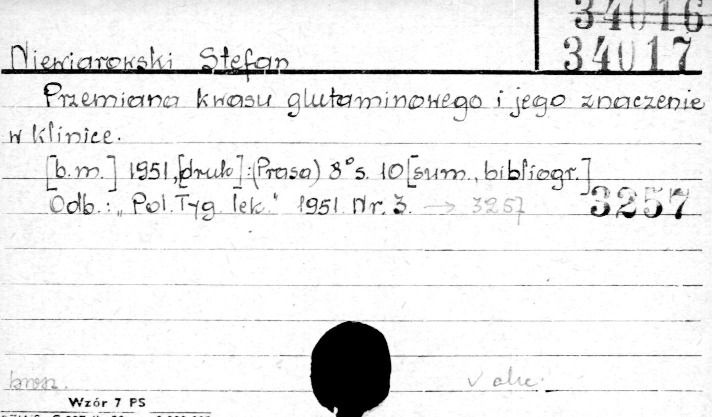 34016
34017
Niewiarowski Stefan
Przemiana kwasu glutaminowego i jego znaczenie
w klinice.
[b.m.] 1951, [druk]: (Prasa) 8° s. 10 [sum., bibliogr.]
Odb.: „Pol. Tyg. lek." 1951 Nr. 3. → 3257 3257
brosz.
Wzór 7 PS